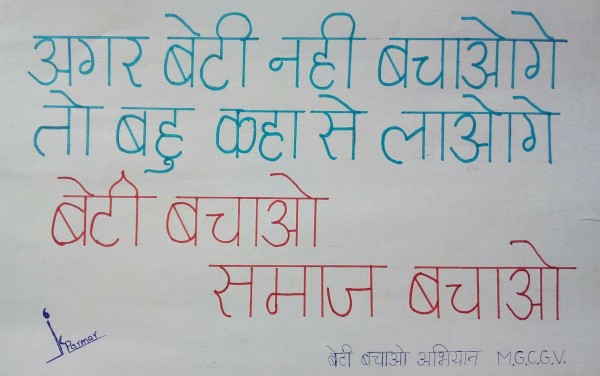 अगर बेटी नही बचाओगे
तो बहु कहा से लाओगे
बेटी बचाओ
समाज बचाओ
Jk Parmar
बेटी बचाओ अभियान M.G.C.G.V.